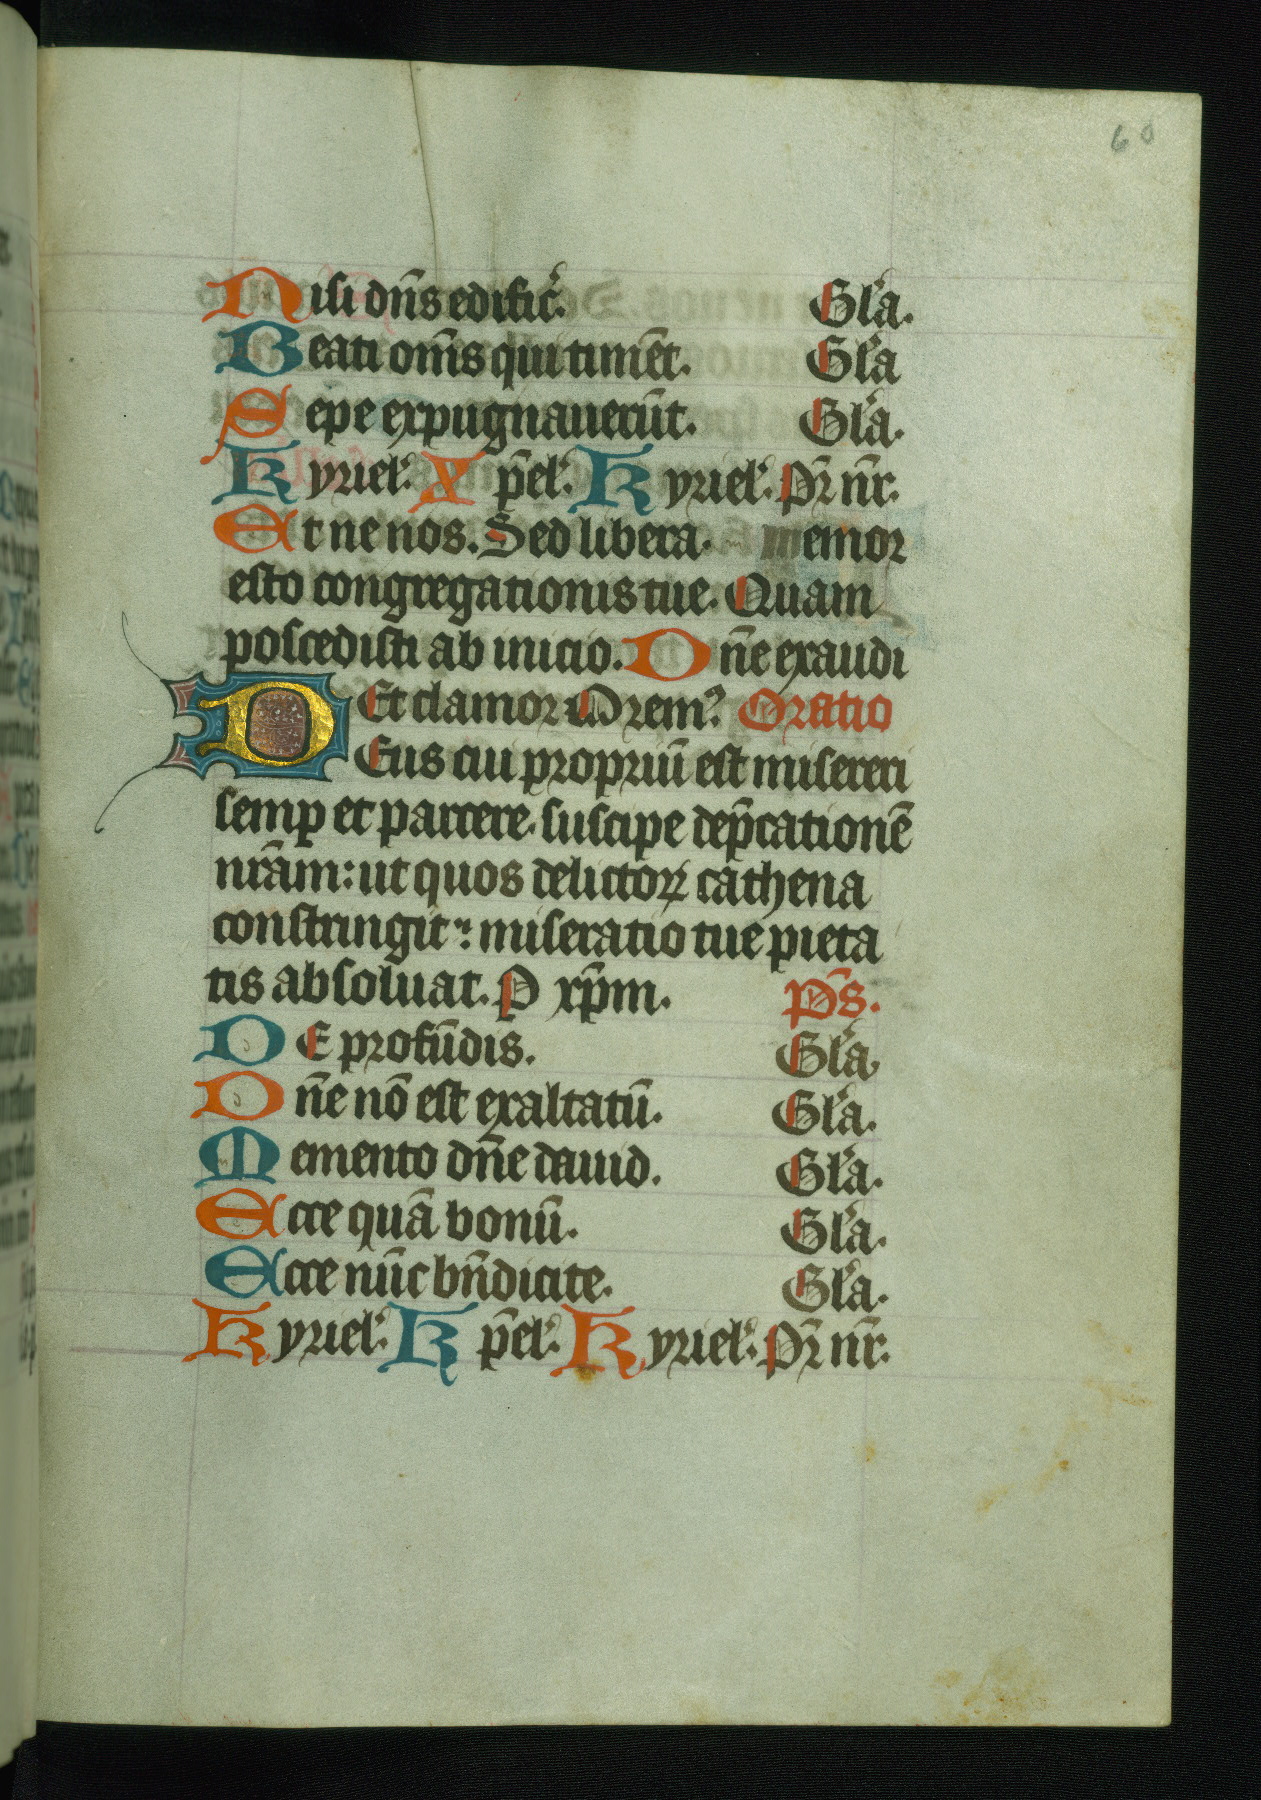 60
Nisi dn̄s edific̄. Gl̄a.
Beati om̄s qui timēt. Gl̄a
Sepe expugnauerūt. Gl̄a.
Kyriel. Xp̄el. Kyriel. Pr̄ nr̄.
Et ne nos. Sed libera. memor
esto congregationis tue. Quam
poscedisti ab inicio. Dn̄e exaudi
Et clamor Orem? Oratio
DEus cui propriū est misereri
semꝑ et parcere. suscipe dep̄cationē
nr̄am: ut quos delictoꝝ cathena
constringit: miseratio tue pieta
tis absoluat. P xp̄m. Ps̄.
DE profūdis. Gl̄a.
Dn̄e nō est exaltatū. Gl̄a.
Memento dn̄e dauid. Gl̄a.
Ecce quā bonū. Gl̄a.
Ecce nūc bn̄dicite. Gl̄a.
Kyriel. Kp̄el. Kyriel. Pr̄ nr̄.